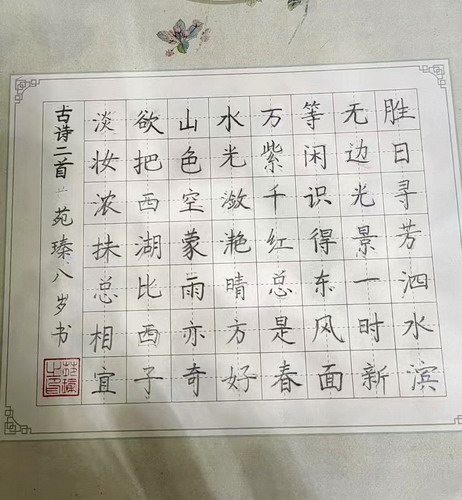 胜日寻芳泗水滨
无边光景一时新
等闲识得东风面
万紫千红总是春
水光潋滟晴方好
山色空蒙雨亦奇
欲把西湖比西子
淡妆浓抹总相宜
古诗二首 苑瑧八岁书